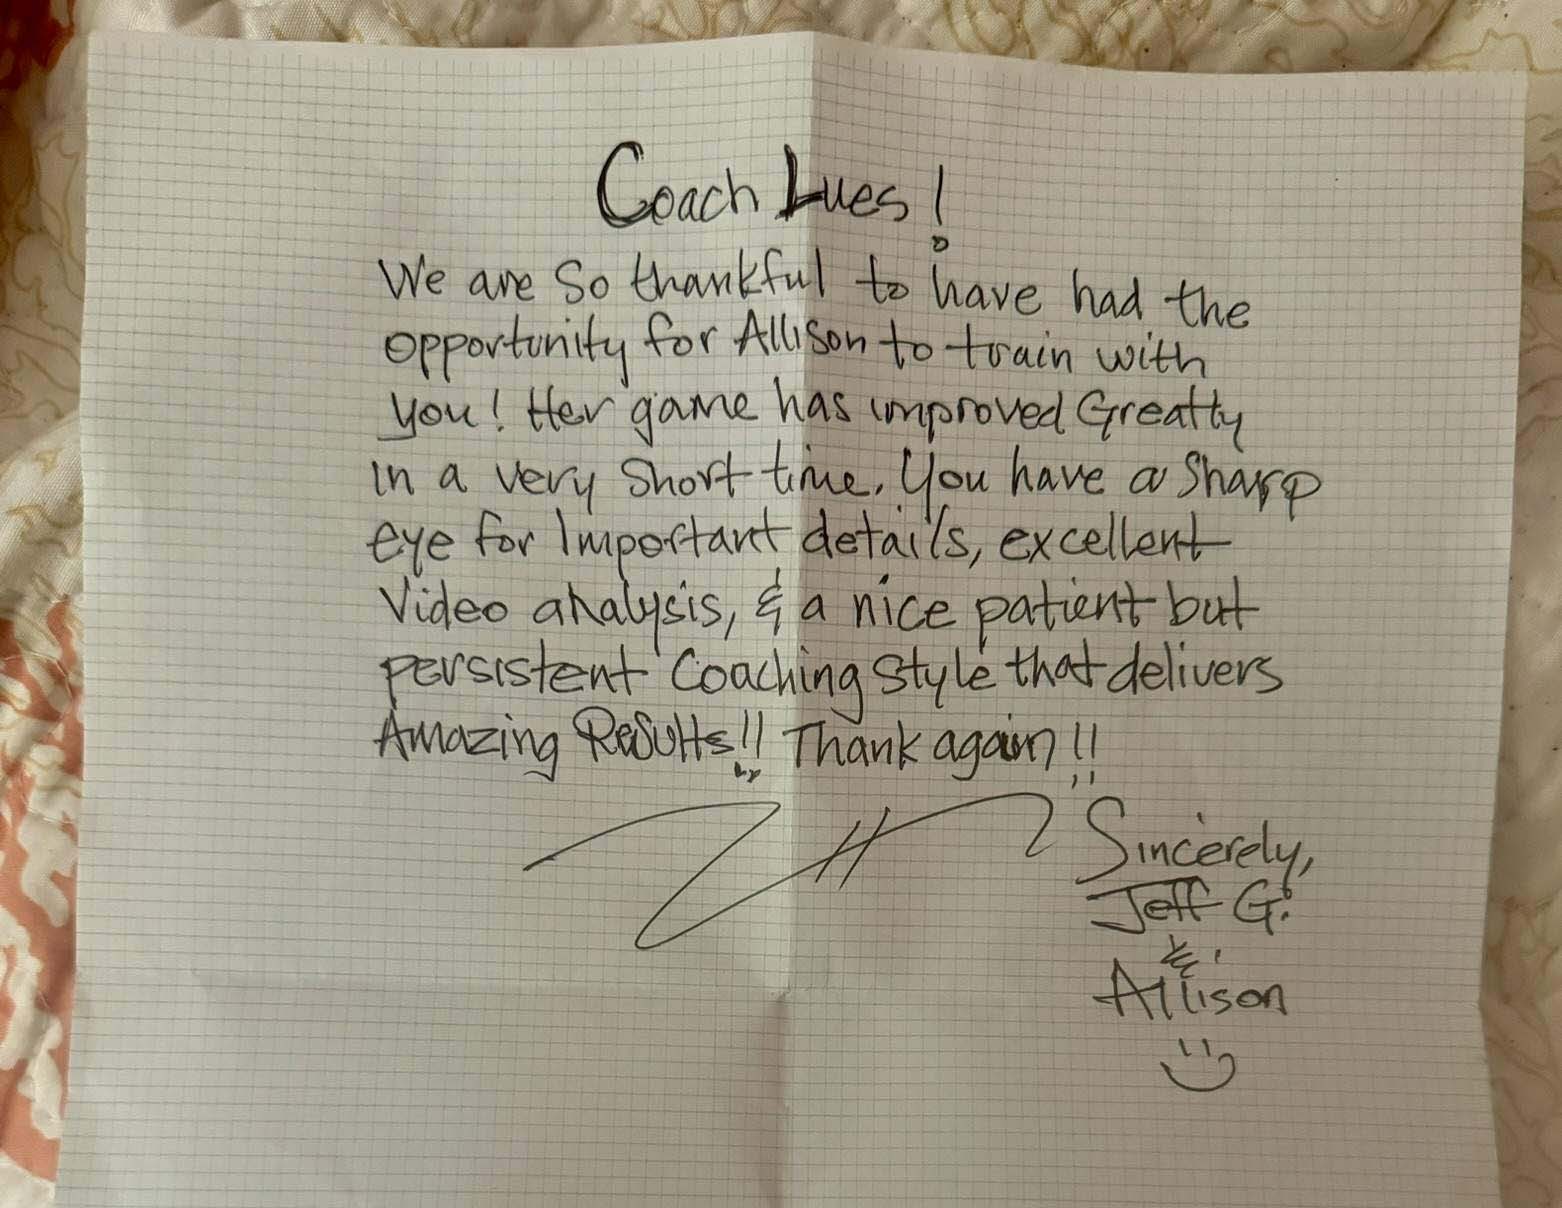 Coach Lues!
We are So thankful to have had the
opportunity for Allison to train with
you! Her game has improved Greatly
in a very short time. You have a sharp
eye for Important details, excellent
Video analysis, & a nice patient but
persistent Coaching Style that delivers
Amazing Results!! Thank again!!
Sincerely,
Jeff G.
&
Allison